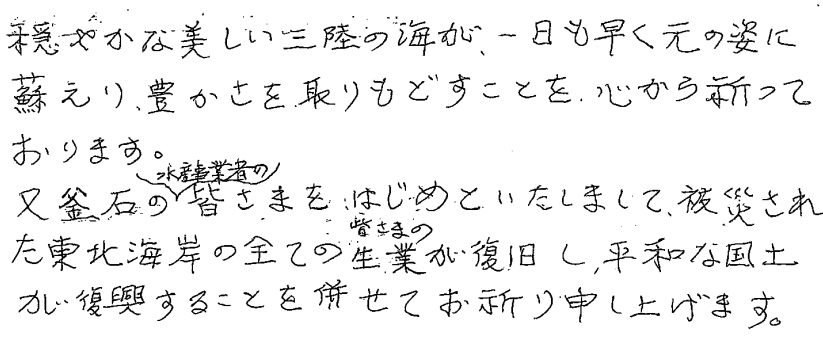 穏やかな美しい三陸の海が、一日も早く元の姿に
蘇えり、豊かさを取りもどすことを、心から祈って
おります。
水産事業者の
又釜石の皆さまをはじめといたしまして、被災され
皆さまの
た東北海岸の全ての生業が復旧し、平和な国土
が復興することを併せてお祈り申し上げます。